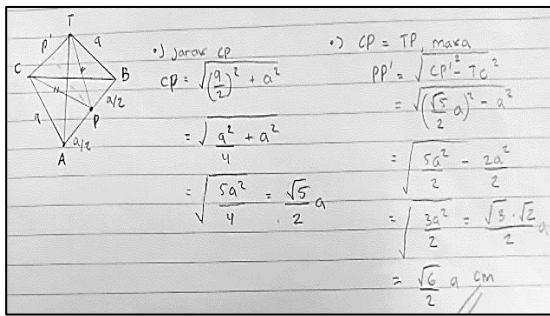 T
P'
a
C
B
a/2
P
a
a/2
A
•) jarak CP
CP = √((a/2)² + a²)
= √(a²/4 + a²)
= √(5a²/4) = √5/2 a
•) CP = TP, maka
PP' = √(CP'² - TC²)
= √((√5/2 a)² - a²)
= √(5a²/2 - 2a²/2)
= √(3a²/2) = √3 · √2/2 a
= √6/2 a cm